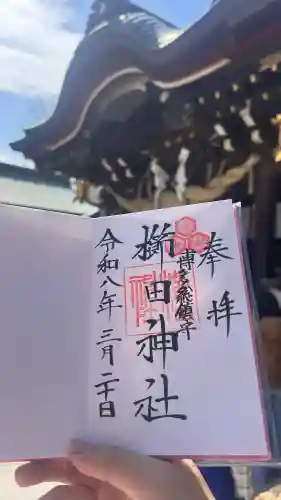 奉拝
博多総鎮守
櫛田神社
令和八年三月二十日